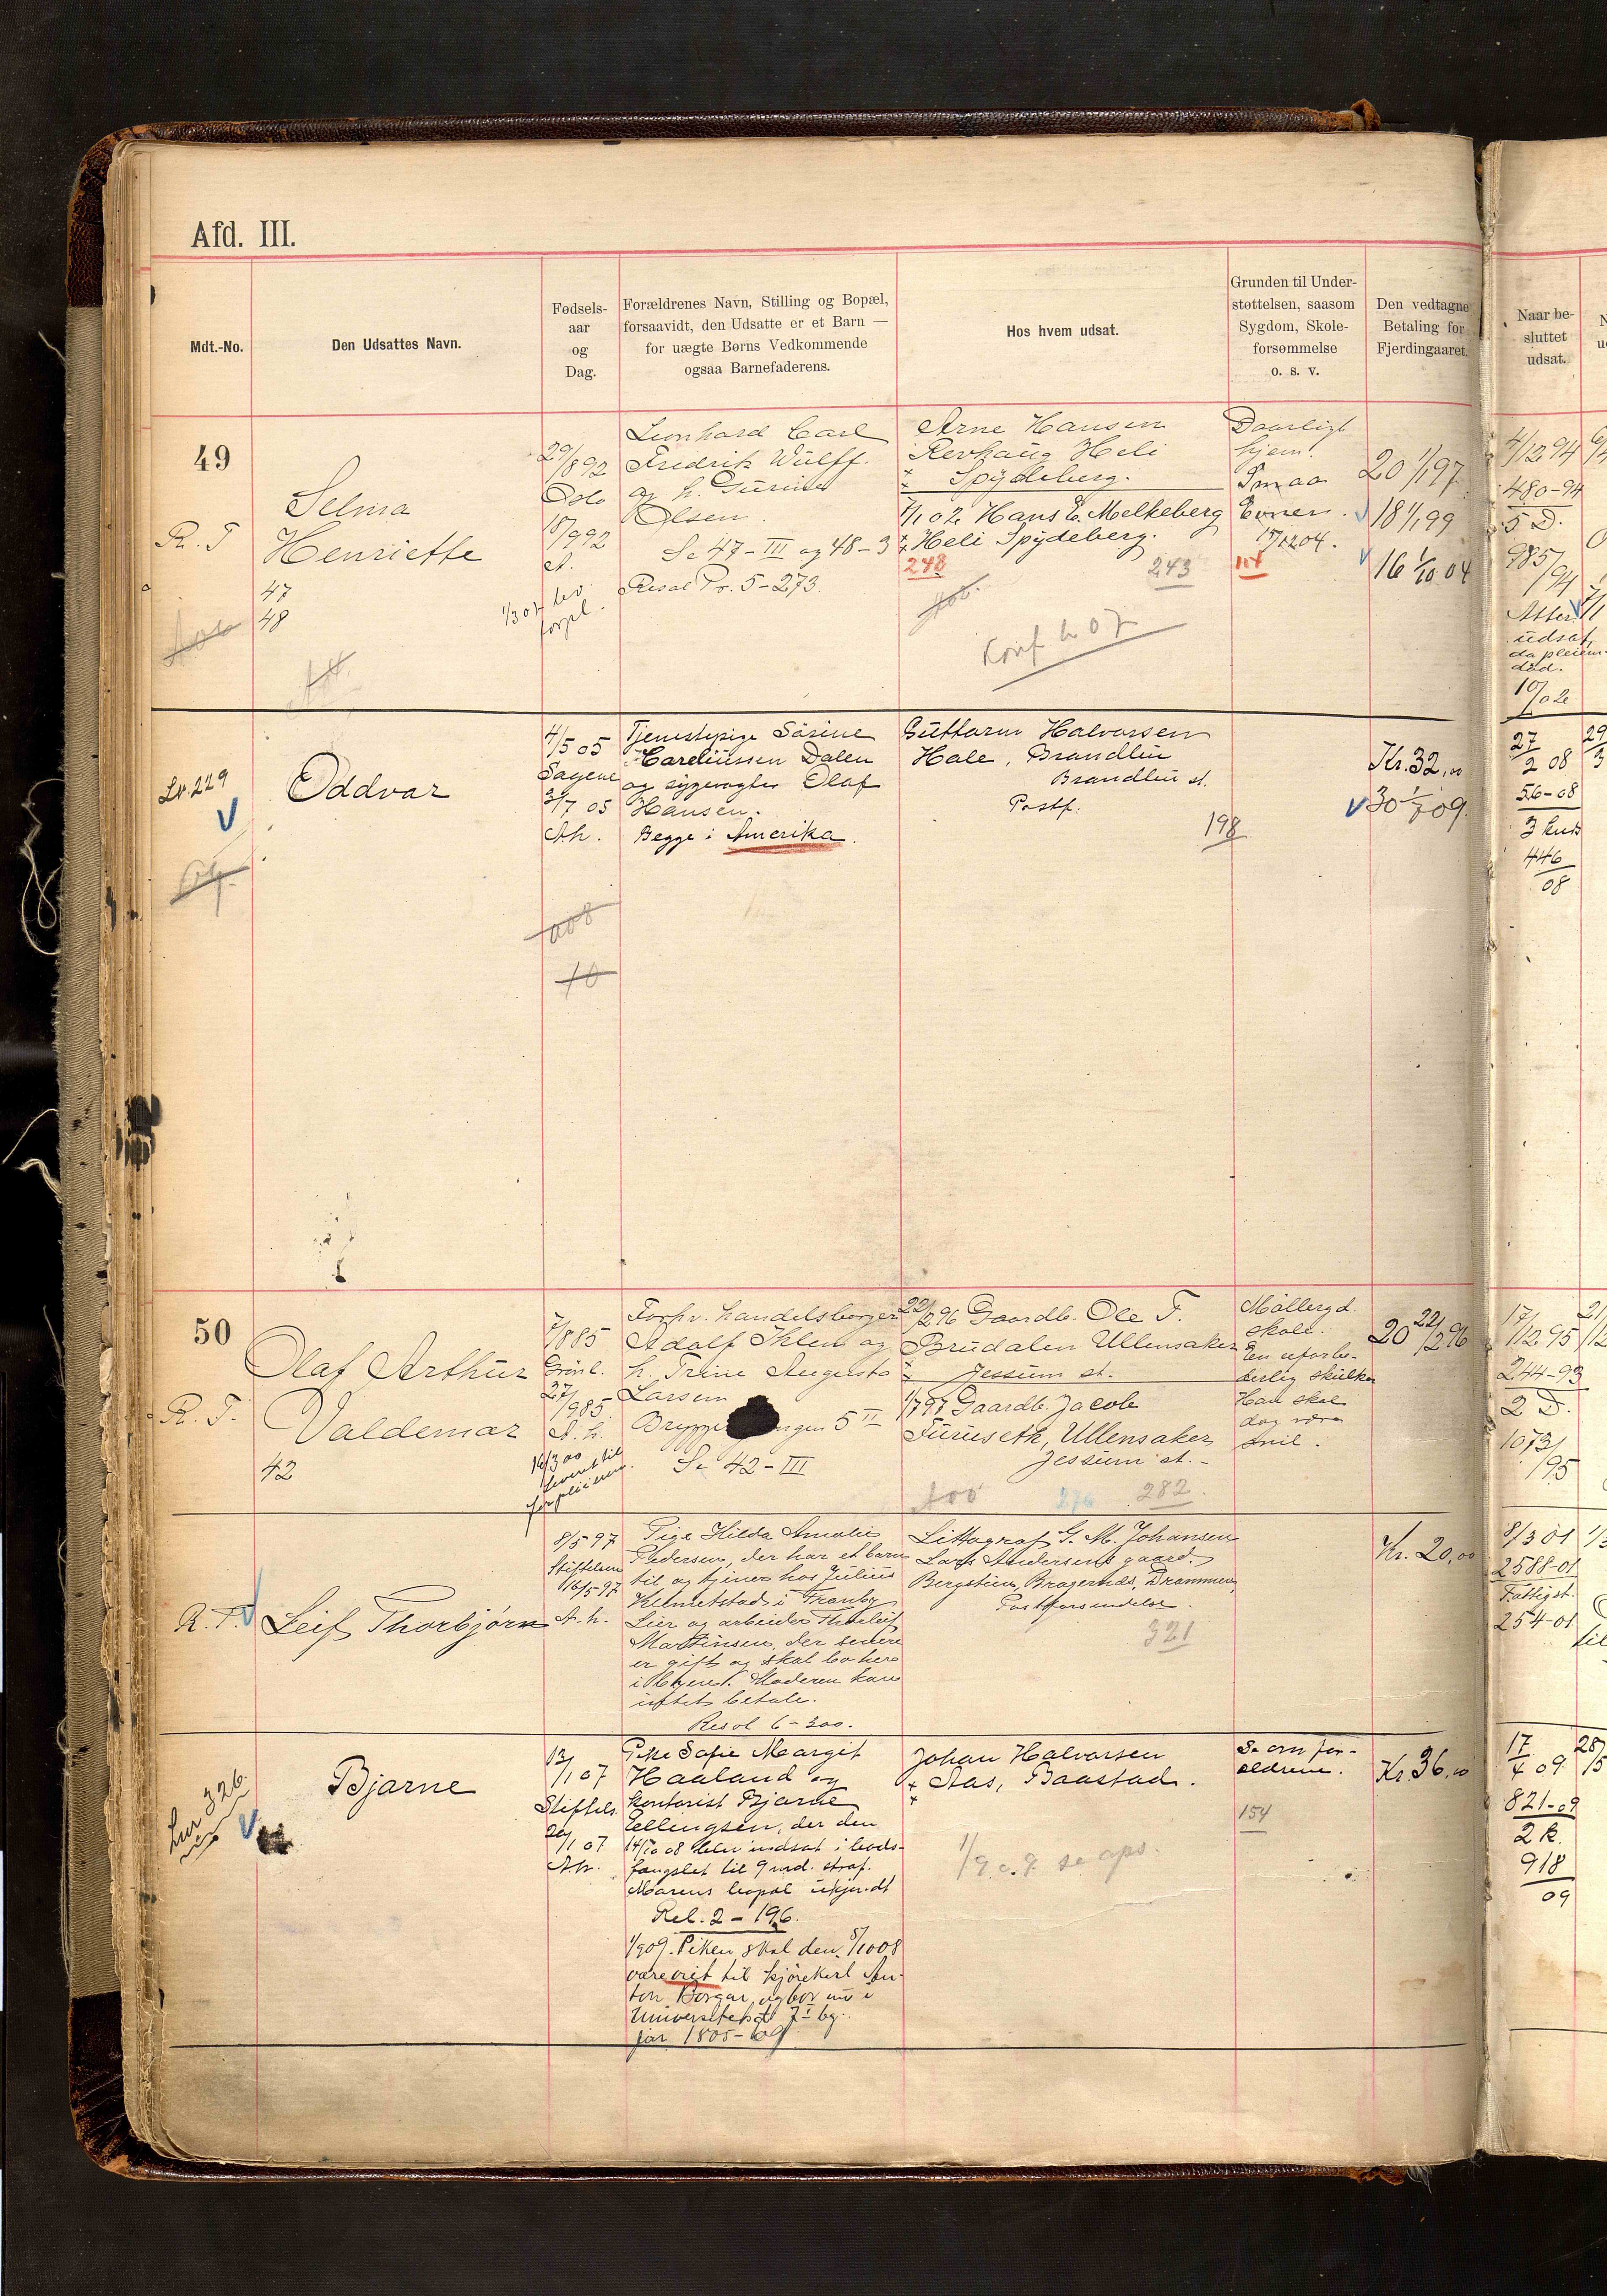 Afd. III.
Mdt.-No.
Den Udsattes Navn.
Fødsels-
aar
og
Dag.
Forældrenes Navn, Stilling og Bopæl,
forsaavidt, den Udsatte er et Barn —
for uægte Børns Vedkommende
ogsaa Barnefaderens.
Hos hvem udsat.
Grunden til Under-
støttelsen, saasom
Sygdom, Skole-
forsømmelse
o. s. v.
Den vedtagne
Betaling for
Fjerdingaaret.
Naar be-
sluttet
udsat.
49
R. T
Selma
Henriette
47
48
29/8 92
Oslo
18/9 92
A.
1/3 07 lev.
forpl.
Leonhard Carl
Fredrik Wulff.
og h.
Olsen.
Se 47-III og 48-3
Resol Pr. 5-273.
Arne Hansen
Revhaug Heli
Spydeberg.
1/1 02 Hans E. Melkeberg
Heli Spydeberg.
248
243
Konf. h 07
Daarligt
hjem.
Smaa
Evner.
15/12 04.
114
20 1/1 97
18 1/1 99
16 1/10 04
4/12 94
480-94
5 D.
985/
94
Atter
udsat,
da pleiem.
død.
10/02
Lv. 229
Oddvar
4/5 05
Sagene
2/7 05
A.h.
Tjenestepige Sörine
Careliussen Dalen
og sygevogter Olaf
Hansen.
Begge i Amerika.
Guttorm Halvorsen
Hale, Brandbu
Brandbu st.
Postf.
198
Kr. 32,00
30 1/7 09.
27
2 08
56-08
3 kus
446
08
10
50
R. T.
Olaf Arthur
Valdemar
42
7/8 85
Grönl.
27/9 85
A. h.
16/3 00
leveret til
forpleiening.
Forhv. handelsborger
Adolf Iklem og
h. Trine Augusta
Larsen
5 II
Se 42-III
22/2 96 Gaardb. Ole T.
Brudalen Ullensaker
Jessum st.
1/7 97 Gaardb. Jacob
Furuseth, Ullensaker
Jessum st.
276
282
Möllergd.
skole.
En uforbe-
derlig skulker
Han skal
dog være
snil.
20 22/2 96
17/12 95
244-93
2 D.
1073/
95
R. T.
Leif Thorbjørn
8/5 97
Stiftelsen
16/5 97
A. h.
Pige Hilda Amalie
Pedersen, der har et barn
til og tjener hos Julius
Helmetstad i Tranby
Lier og arbeider Thorleif
Martinsen, der senere
er gift og skal bo her
i byen. Moderen kan
intet betale.
Resol 6-300.
Littograf G. M. Johansen
Lars Andersens gaard.
Bergstien, Bragernes, Drammen
Postforsendelse.
321
Kr. 20,00
8/3 01
2588-01
Fattigst.
254-01
326.
Bjarne
13/1 07
Stiftels.
20/1 07
A.h.
Pike Sofie Margit
Haaland og
kontorist Bjarne
Ellingsen, der den
14/10 08 blev indsat i bods-
fængslet til 9 md. straf.
Morens bopæl ukjendt
Rel. 2 - 196.
1/9 09. Piken skal den 5/10 08
være viet til kjörekarl An-
ton Borgar, og bor nu i
Universitetsgt 7 I bg.
jör 1805-09
Johan Halvorsen
Aas, Baastad.
Se om for-
ældrene.
154
Kr. 36,00
17
4 09
821-09
2 K.
918
09